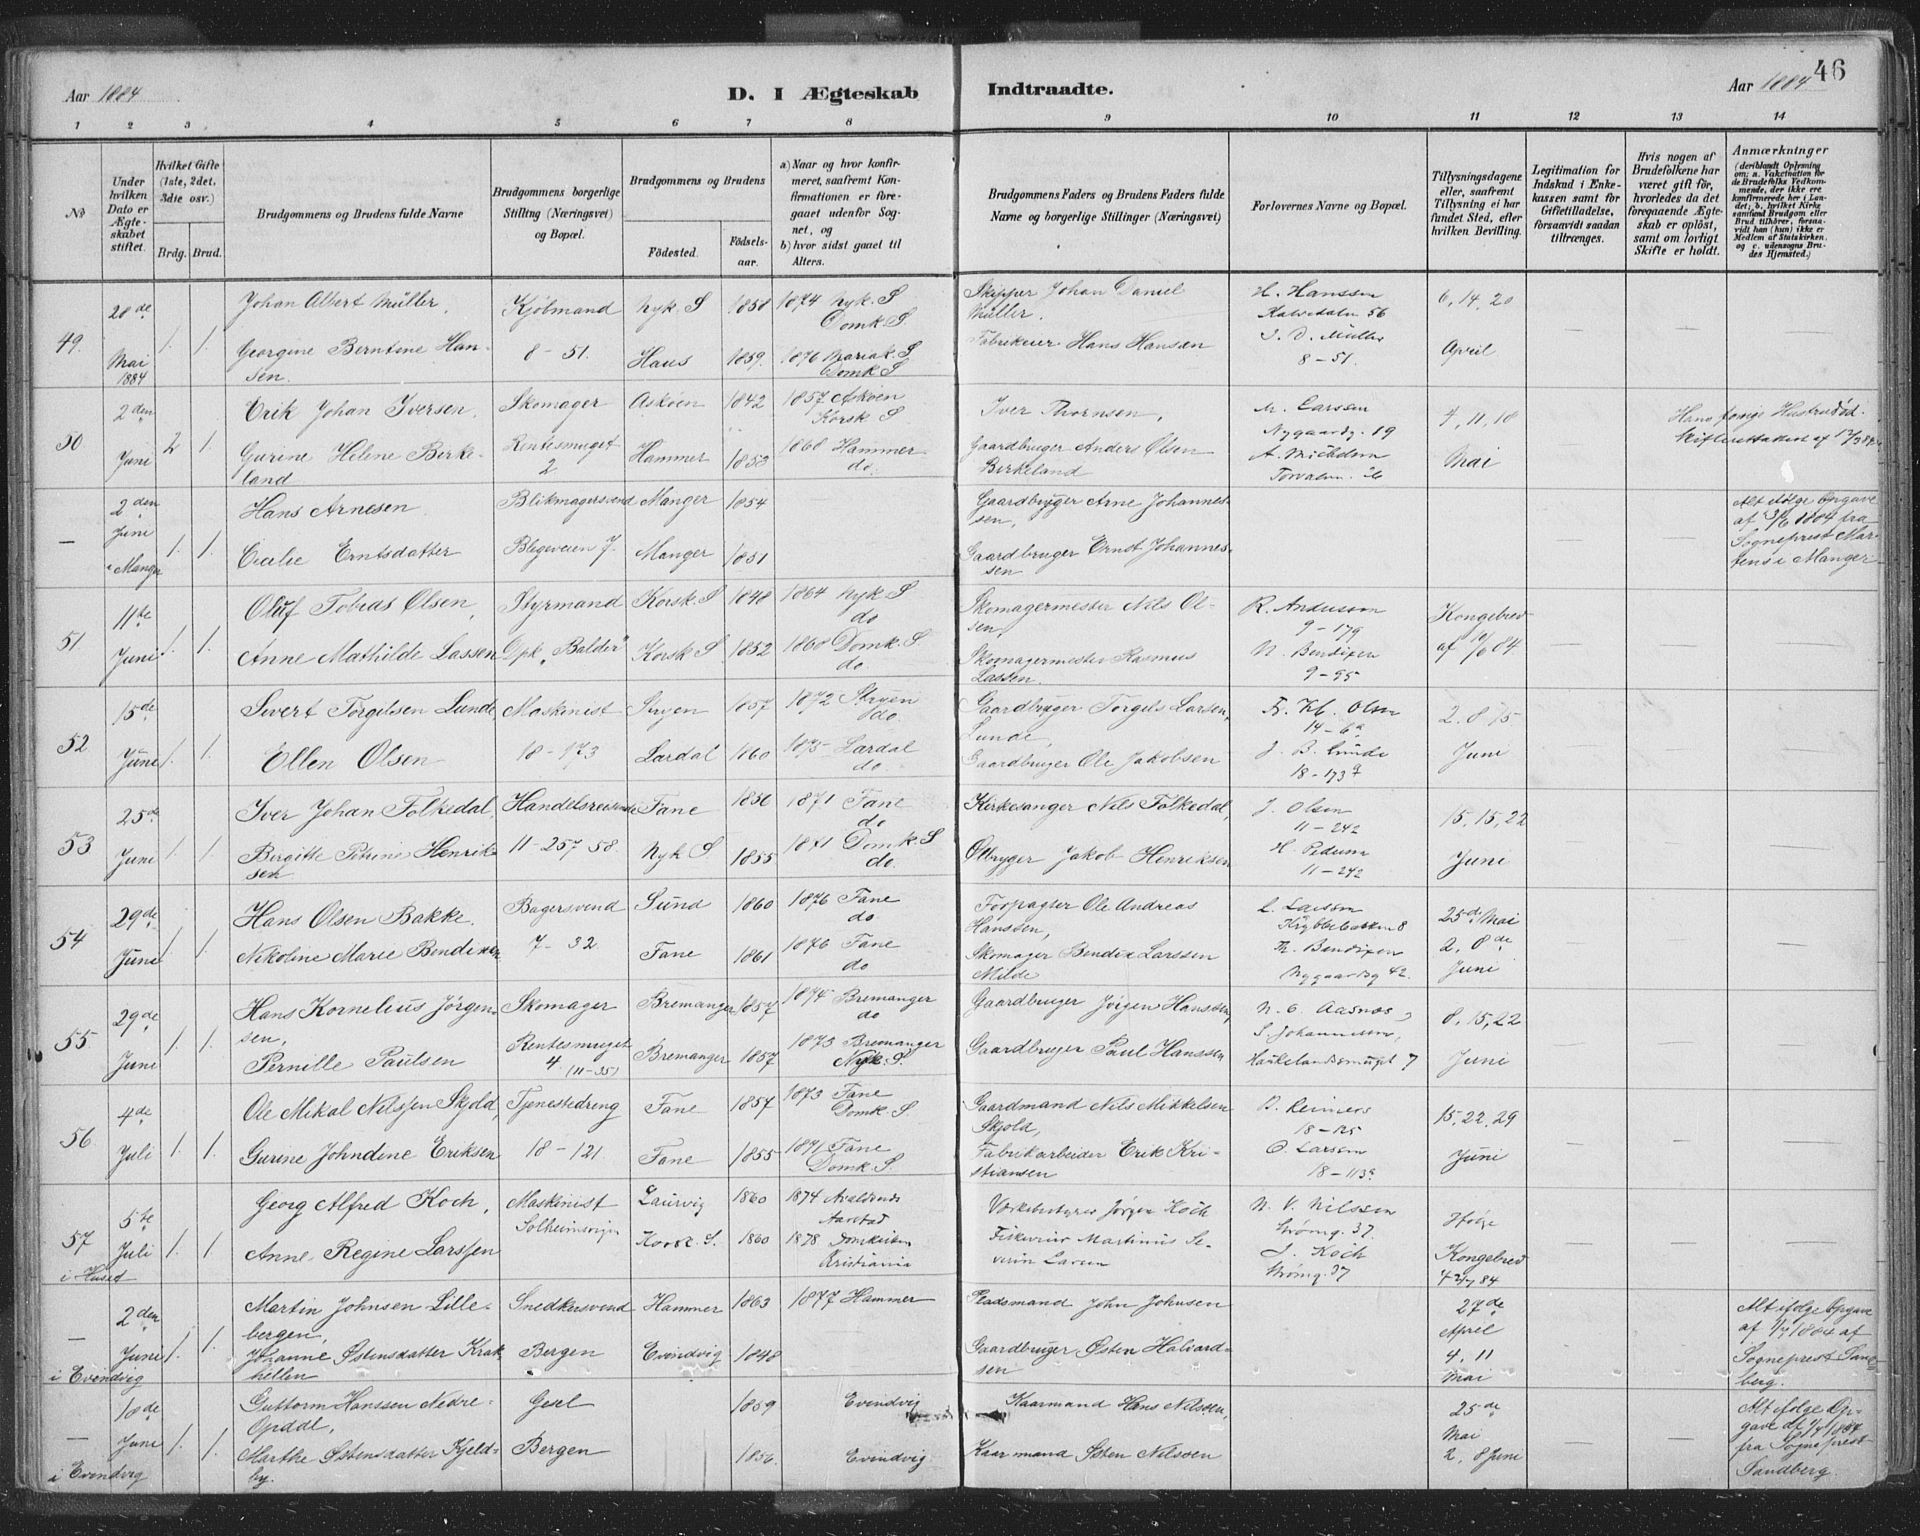 Aar 1884
D. I Ægteskab
Indtraadte.
Aar 1884.
46
1 2 3 4 5 6 7 8 9 10 11 12 13 14
No
Under hvilken Dato er Ægteskabet stiftet.
Hvilket Gifte (1ste, 2det, 3die osv.)
Brdg. Brud.
Brudgommens og Brudens fulde Navne
Brudgommens borgerlige Stilling (Næringsvei) og Bopæl.
Brudgommens og Brudens
Födested.
Födselsaar.
a) Naar og hvor konfirmeret, saafremt Konfirmationen er foregaaet udenfor Sognet, og
b) hvor sidst gaaet til Alters.
Brudgommens Faders og Brudens Faders fulde Navne og borgerlige Stillinger (Næringsvei)
Forlovernes Navne og Bopæl.
Tillysningsdagene eller, saafremt Tillysning ei har fundet Sted, efter hvilken Bevilling.
Legitimation for Indskud i Enkekassen samt for Giftetilladelse, forsaavidt saadan tiltrænges.
Hvis nogen af Brudefolkene har været gift før, hvorledes da det foregaaende Ægteskab er opløst, samt om lovligt Skifte er holdt.
Anmærkninger
(deriblandt Oplysning om: a. Vaccination for de Brudefolks Vedkommende, der ikke ere konfirmerede her i Landet; b. hvilket Kirkesamfund Brudgom eller Brud tilhörer, forsaavidt han (hun) ikke er Medlem af Statskirken, og c. udensogns Brudes Hjemsted.)
49.
28de Mai 1884
1. 1.
Johan Albert Müller,
Georgine Berntine Hansen.
Kjöbmand
8-51.
Nyk. S 1858 1874 Nyk. S
Domk. S.
Haus 1859. 1876 Mariak. S
Domk. S
Skipper Johan Daniel Müller.
Hans Hansen
H. Hanssen
56
J. D. Müller
8-51
6, 14, 20
April
50
2den Juni
2 1.
Erik Johan Iversen,
Gurine Helene Birkeland
Skomager
Rentesmuget 2
Askøen 1842 1857 Askøen
Korsk S
Hammer 1853 1868 Hammer
do.
Iver Thornsen,
Gaardbruger Anders Olsen Birkeland
M. Larssen
Nygaardg. 19
A. Michelsen
Torvalm. 26
4, 11, 18
Mai
Hans forrige Hustru död.
Skifteattest af 12/3 84
—
2den Juni
i Manger
1. 1.
Hans Arnesen
Cecilie Erntsdatter
Blikmagersvend
Blegeveien 7.
Manger 1854
Manger 1851
Gaardbruger Arne Johannessen,
Gaardbruger Ernst Johannessen
Alt ifølge Opgave
af 3/6 1884 fra
Sogneprest Martens i Manger
51
11te Juni
1. 1.
Oluf Tobias Olsen,
Anne Mathilde Lassen
Styrmand
Dpk. „Balder"
Korsk. S 1848 1864 Nyk S
do
Korsk S 1852 1868 Domk. S
do.
Skomagermester Nils Olsen,
Skomagermester Rasmus Lassen.
R. Andersson
9-179
N. Bendixen
9-95
Kongebrev
af 10/6 84
52
15de Juni
1. 1.
Sivert Torgilsen Lunde,
Ellen Olsen
Maskinist
18-173
Stryen 1857 1872 Stryen
do.
Lærdal 1860 1875 Lærdal
do.
Gaardbruger Torgils Larsen Lunde,
Gaardbruger Ole Jakobsen
Fr. Kl. Olsen
14-6a
J. B. Lunde
18-173a
2. 8. 15
Juni
53
25de Juni
1. 1.
Iver Johan Folkedal,
Bergitte Petrine Henriksen
Handelsreisende
11-257-58.
Fane 1850 1871 Fane
do
Nyk S 1855 1871 Domk. S
do.
Kirkesanger Nils Folkedal,
Ølbryger Jakob Henriksen
J. Olsen
11-242
H. Pedersen
11-242
15, 15, 22
Juni
54
29de Juni
1. 1.
Hans Olsen Bakke.
Nikoline Marie Bendixen
Bagersvend
7-32
Sund 1860 1876 Fane
do
Fane 1861 1876 Fane
do
Forpagter Ole Andreas Hanssen,
Skomager Bendix Larssen Milde
L. Larssen
Krybbebakken 8
Fr. Bendixen
Nygaardsg 42.
25de Mai
2. 8de
Juni
55.
29de Juni
1. 1.
Hans Kornelius Jörgensen,
Pernille Paulsen
Skomager
Rentesmuget
4 (11-35)
Bremanger 1857 1874 Bremanger
do
Bremanger 1857 1873 Bremanger
Nyk. S.
Gaardbruger Jörgen Hanssen,
Gaardbruger Paul Hanssen
N. C. Aasnæs,
S. Johannessen,
Haukelandsmuget 7
8, 15, 22
Juni
56.
4de Juli
1. 1.
Ole Mikal Nilssen Skjold,
Gurine Johndine Eriksen
Tjenestedreng
18-121
Fane 1857 1873 Fane
Domk. S.
Fane 1855 1871 Fane
Domk. S.
Gaardmand Nils Mikkelsen Skjold,
Fabrikarbeider Erik Kristiansen
B. Reimers
18-125
O. Larsen
18-113a
15, 22, 29
Juni
57
i Huset
5te Juli
1. 1.
Georg Alfred Koch,
Anne Regine Larssen
Maskinist
Solheimsvien
Laurvig 1860 1874 Avaldsnæs
Aarstad
Korsk. S. 1860 1878 Domkirken
Kristiania
Værksbestyrer Jörgen Koch
Martinus Severin Larsen
N. V. Nilssen
Strömg. 37.
J. Koch
Strömg. 37
Ifölge
Kongebrev
2/7 84
—
i Evindvig
2den Juni
1. 1.
Martin Johnsen Lillebergen,
Johanne Østensdatter Krakhellen
Snedkersvend
Bergen
Hammer 1863 1877 Hammer
Evindvig 1848
Pladsmand John Johnsen
Gaardbruger Østen Halvardsen
27de April
4, 11
Mai
Alt ifølge Opgave
af 1/7 1884 af
Sogneprest Sandberg.
—
i Evindvig
18de Juni
1. 1.
Guttorm Hanssen Nedre-Opdal,
Marthe Østensdatter Kjeldsby.
Gesel
Bergen
1859 Evindvig
1856. Evindvig
Kaarmand Hans Nilssen,
Kaarmand Østen Nilssen
25de
Mai
2, 8 Juni
Alt ifølge Opgave dt 1/7 1884
fra Sogneprest
Sandberg.